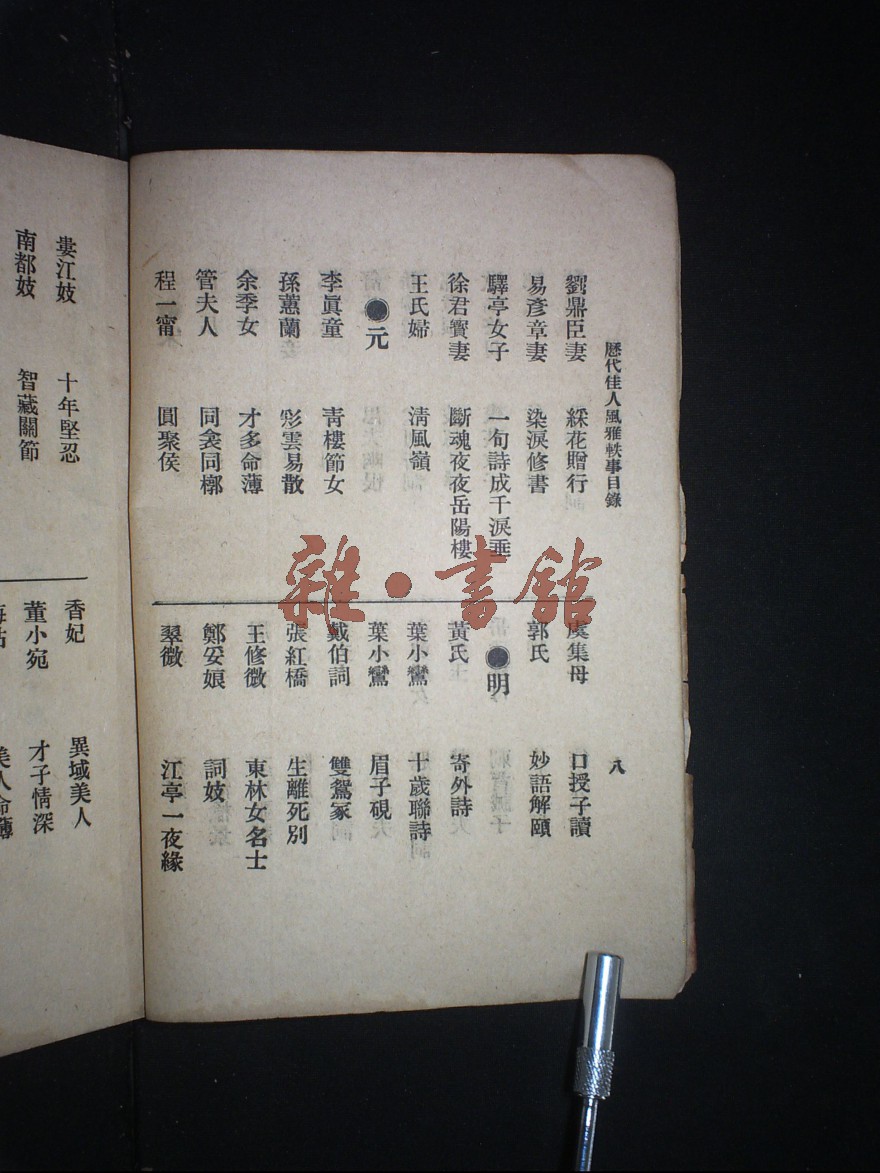 歷代佳人風雅軼事目錄
八
劉鼎臣妻 綵花贈行
易彥章妻 染淚修書
驛亭女子 一句詩成千淚垂
徐君寶妻 斷魂夜夜岳陽樓
王氏婦 清風嶺
●元
李眞童 靑樓節女
孫蕙蘭 彩雲易散
余季女 才多命薄
管夫人 同衾同槨
程一甯 圓聚侯
虞集母 口授子讀
郭氏 妙語解頤
●明
黃氏 寄外詩
葉小鸞 十歲聯詩
葉小鸞 眉子硯
戴伯詞 雙鴛冢
張紅橋 生離死別
王修微 東林女名士
鄭妥娘 詞妓
翠微 江亭一夜緣
婁江妓 十年堅忍
南都妓 智藏關節
香妃 異域美人
董小宛 才子情深
美人命薄
雜·書舘